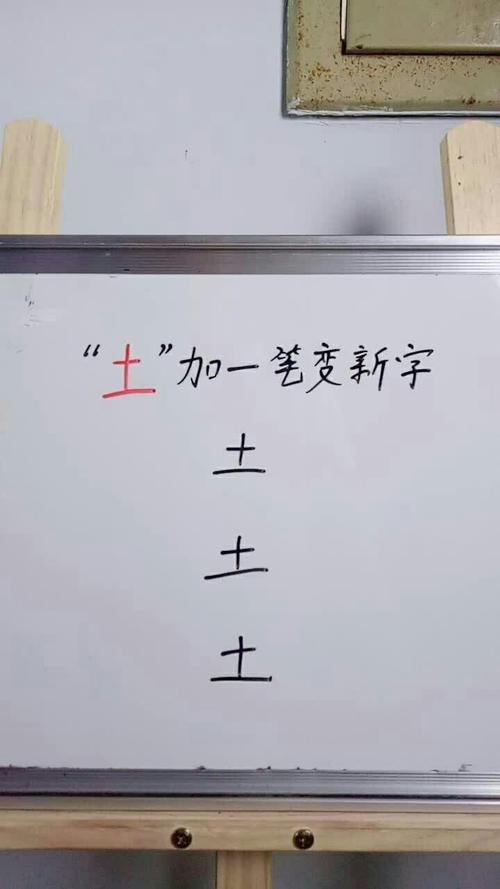 “土”加一笔变新字
土
土
土